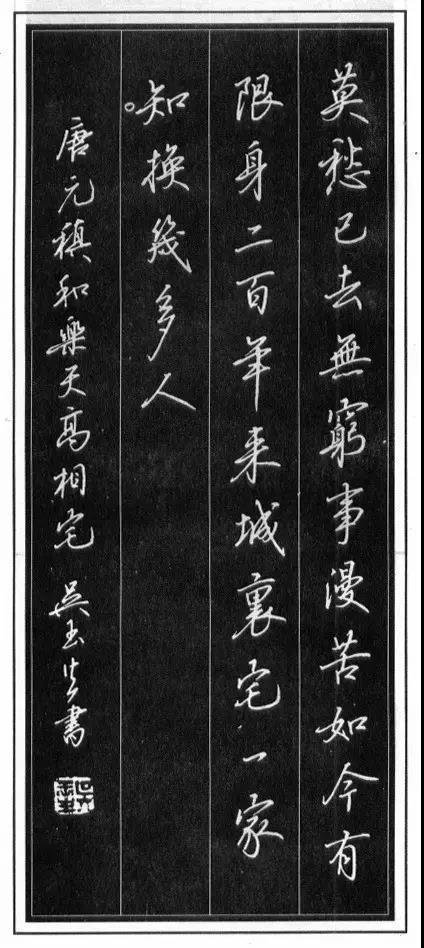 莫愁已去無窮事漫苦如今有
限身二百年来城裏宅一家
知換幾多人
唐元稹和樂天高相宅 吳玉生書